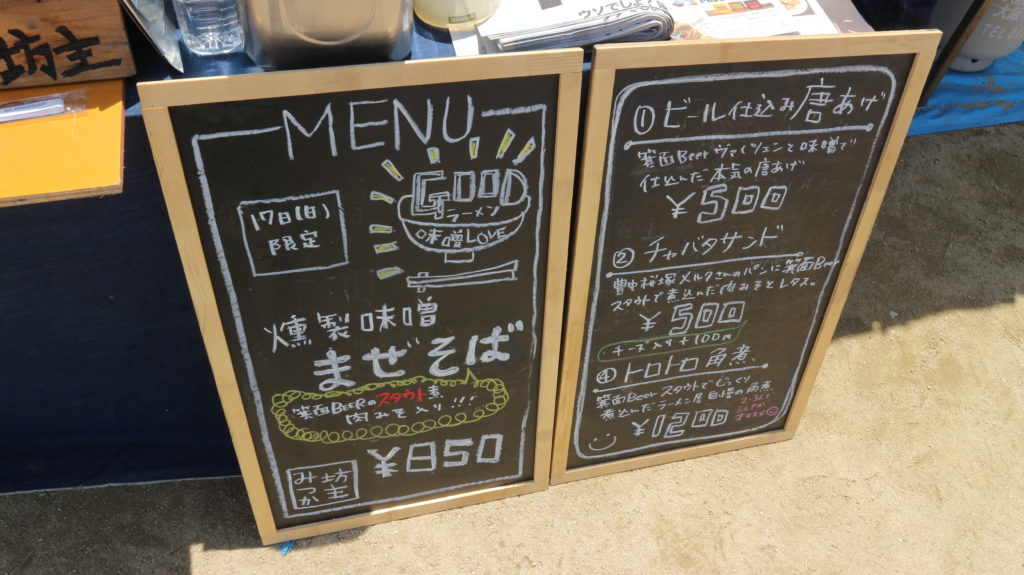 坊主
ウソでしょ
MENU
17日(日)
限定
GOOD
ラーメン
味噌LOVE
燻製味噌
まぜそば
箕面BEERのスタウト煮
肉みそ入り!!!
¥850
み坊
か主
①ビール仕込み唐あげ
箕面Beerヴァイツェンと味噌で
仕込んだ本気の唐あげ
¥500
②チャバタサンド
豊中桜塚メルタさんのパンに箕面Beer
スタウトで煮込んだ肉みそとレタス。
¥500
チーズ入り+100円
④トロトロ角煮
箕面Beerスタウトでじっくり
煮込んだラーメン屋自慢の角煮
¥1200
2〜3人で
シェアが
オススメ